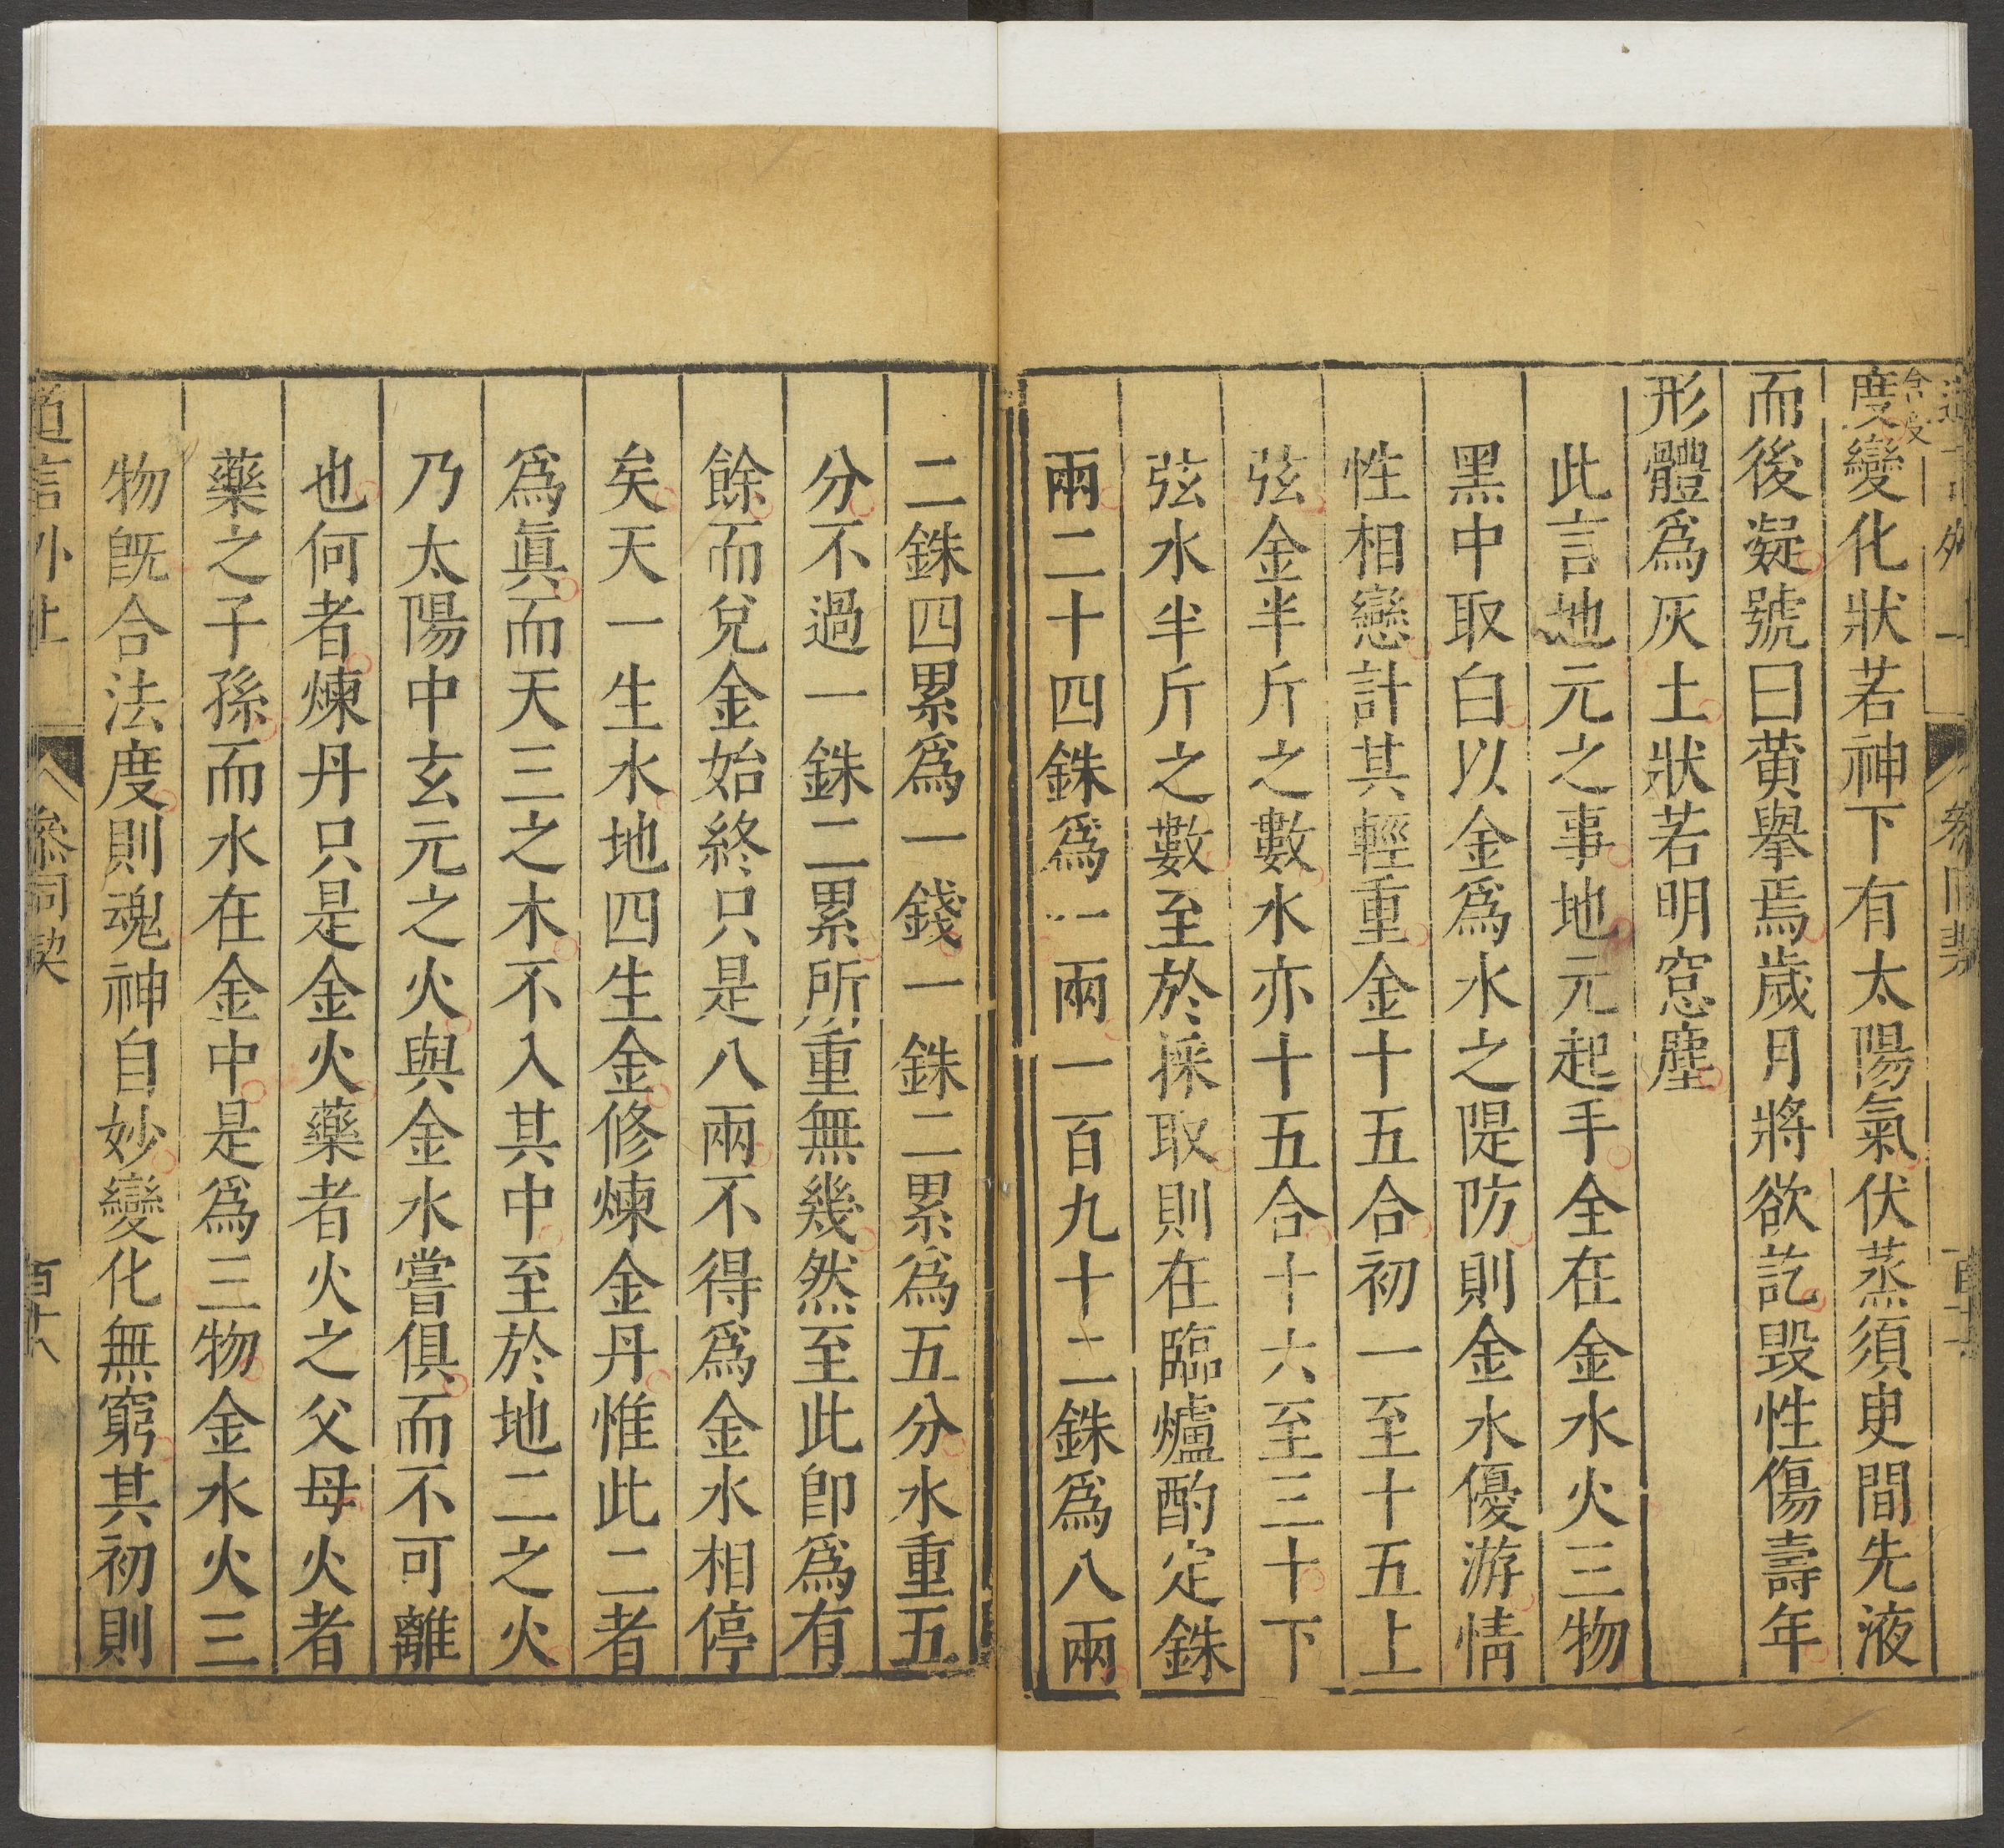 度變化狀若神下有太陽氣伏蒸須臾間先液
而後凝號曰黄轝焉歲月將欲訖毀性傷壽年
形體為灰土狀若明窓塵
此言地元之事地元起手全在金水火三物
黑中取白以金為水之隄防則金水優游情
性相戀計其輕重金十五合初一至十五上
弦金半斤之數水亦十五合十六至三十下
弦水半斤之數至於採取則在臨爐酌定銖
兩二十四銖為一兩一百九十二銖為八兩
二銖四累為一錢一銖二累為五分水重五
分不過一銖二累所重無幾然至此即為有
餘而兌金始終只是八兩不得為金水相停
矣天一生水地四生金修煉金丹惟此二者
為眞而天三之木不入其中至於地二之火
乃太陽中玄元之火與金水嘗俱而不可離
也何者煉丹只是金火藥者火之父母火者
藥之子孫而水在金中是為三物金水火三
物既合法度則魂神自妙變化無窮其初則
道言外
參同契